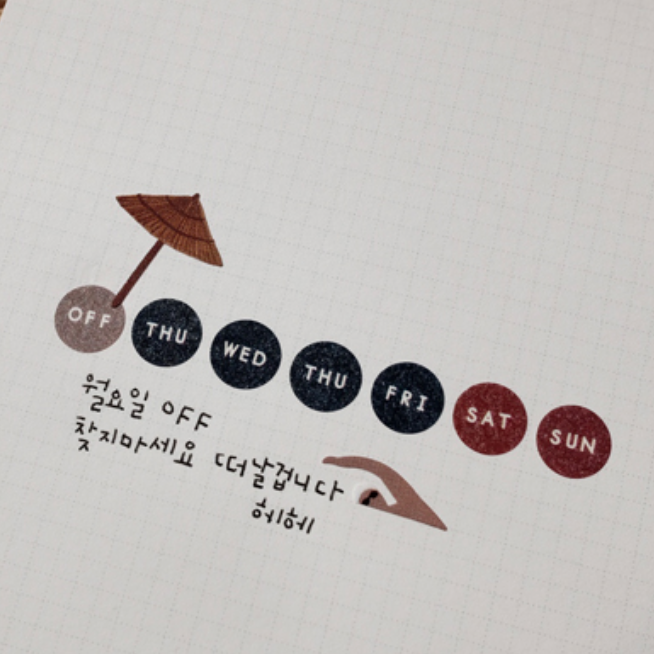 OFF THU WED THU FRI SAT SUN
월요일 OFF
찾지마세요 떠날겁니다
헤헤